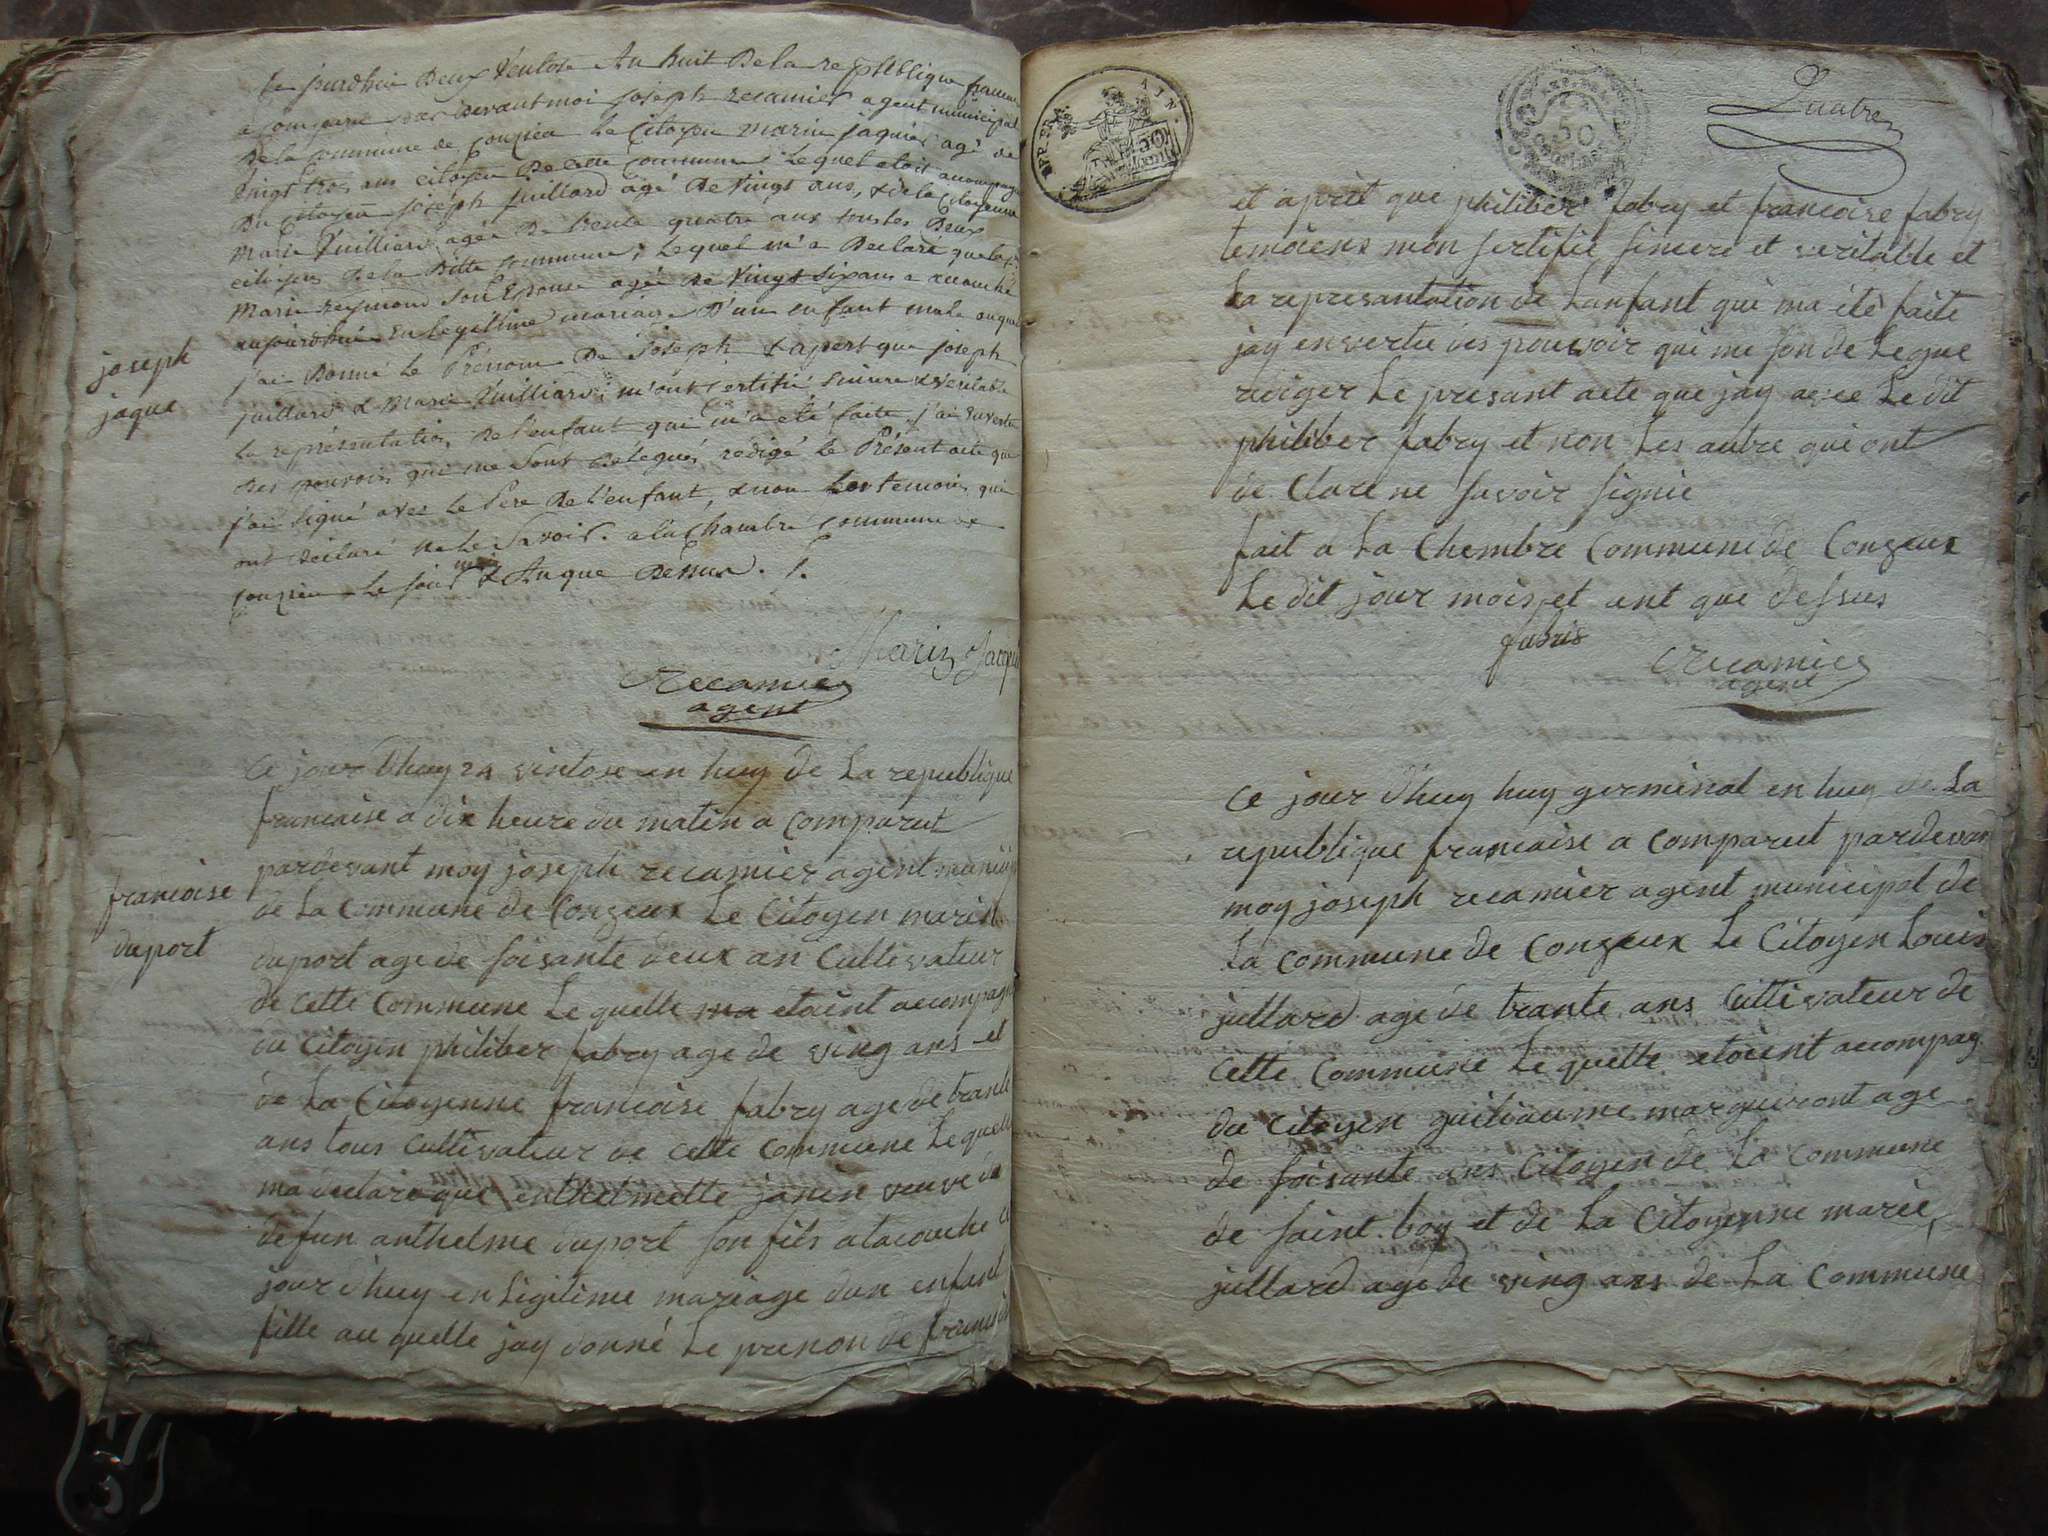 Ce jourdhui Deux Ventose An huit De la republique
a comparu par devant moi joseph recamier agent municipal
De la commune de Conzieu le Citoyen Marin jaquier agé de
Vingt trois ans citoyen De cette commune Lequel etoit accompagné
Du Citoyen joseph juillard agé De Vingt ans, & de la Citoyenne
Marie Vuilliard agée De trente quatre ans tous les Deux
citoyens De la Ditte commune, Lequel m'a Declaré que la
Marie Reymond Son Epouse agée De Vingt Six ans a accouché
aujourdhui En legitime mariage D'un enfant male auquel
j'ai Donné Le Prénom De Joseph & apert que joseph
juillard & Marie Vuilliard, m'ont Certifié Sincere & Veritable
La représentation De l'enfant qui m'a eté faite, j'ai En vertu
Des pouvoirs qui me Sont Délégués rédigé Le Présent acte que
j'ai Signé avec Le Pere De l'enfant, & non Les temoins qui
ont déclaré Ne Le Savoir. a la Chambre commune de
Conzieu Le jour mois & An que Dessus. /.
joseph
jaque
Marin Jacqui
Recamier
agent
Ce jour Dhuy 24 vintose en huy de La republique
francaise a dix heure du matin a comparut
pardevant moy joseph recamier agent municip
de La commune de Conzeux Le Citoyen marin
duport age de soisante deux an Cultivateur
de cette commune Le quelle ma etoint accompagn
du Citoyen philiber fabry age de ving ans et
de La Citoyenne francoise fabry age de trante
ans tous cultivateur de cette commune Le quelle
ma declare que enthelmette janin veuve du
defun anthelme duport son fils at acouche ce
jour dhuy en Ligitime mariage dun enfant
fille au quelle jay donné Le prenon de francoise
francoise
duport
Quatre
SUPTER. AIN.
50
et aprèt que philiber fabry et francoise fabry
temoiens mon sertifié sincere et veritable et
La represantation de Lanfant qui ma été faite
jay en vertu des pouvoir qui me son de Legue
rediger Le presant acte que jay avec Le dit
philiber fabry et non Les autre qui ont
de Clare ne savoir signie
fait a La Chembre Commune de Conzeux
Le dit jour mois et ant que desus
fabris
Recamier
agent
Ce jour Dhuy huy germinal en huy de La
republique francaise a comparut pardevan
moy joseph recamier agent municipal de
La commune de Conzeux Le Citoyen Louis
jullard age de trante ans Cultivateur de
cette Commune Le quelle etoient accompag
du Citoyen guiliaume marqueront age
de soisante ans Citoyen de La commune
de saint boy et de La Citoyenne marie
jullard age de ving ans de La Commune